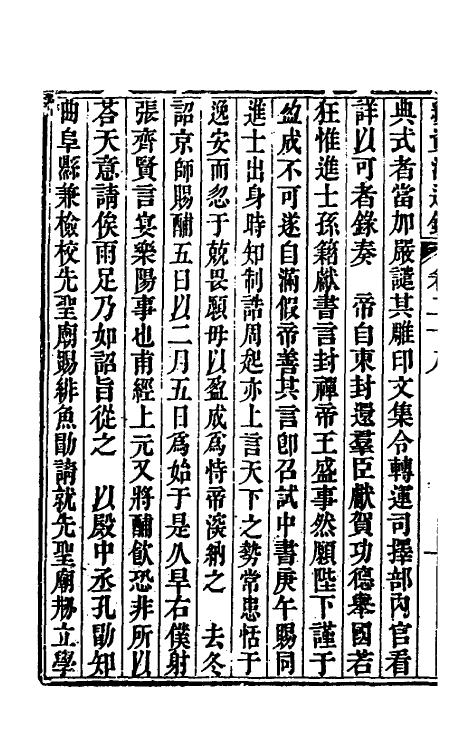 典式者當加嚴譴其雕印文集令轉運司擇部內官看
詳以可者錄奏　帝自東封還羣臣獻賀功德舉國若
狂惟進士孫籍獻書言封禪帝王盛事然願陛下謹于
盈成不可遂自滿假帝善其言卽召試中書庚午賜同
進士出身時知制誥周起亦上言天下之勢常患恬于
逸安而忽于兢畏願毋以盈成爲恃帝深納之　去冬
詔京師賜酺五日以二月五日爲始于是久旱右僕射
張齊賢言宴樂陽事也甫經上元又將酺飲恐非所以
荅天意請俟雨足乃如詔旨從之　以殿中丞孔勖知
曲阜縣兼檢校先聖廟賜緋魚勖請就先聖廟栁立學